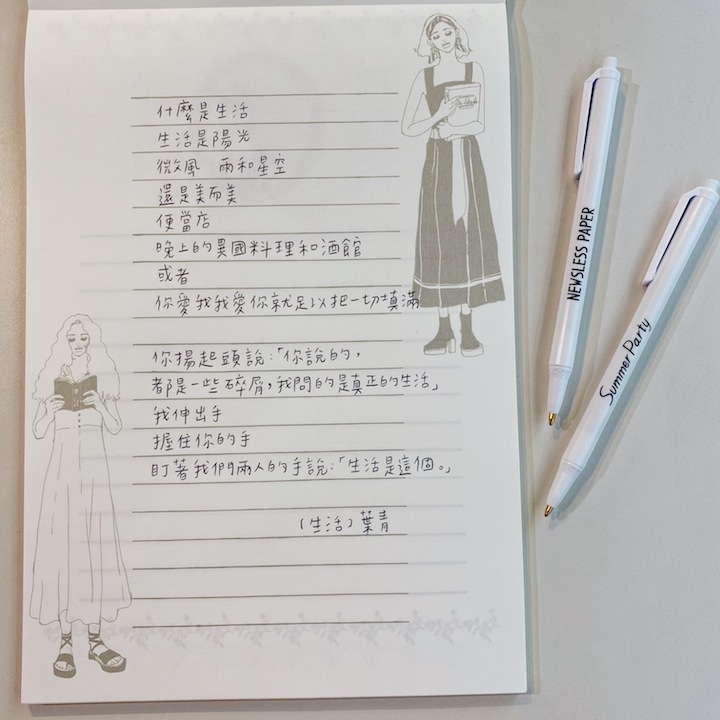 什麼是生活
生活是陽光
微風　雨和星空
還是美而美
便當店
晚上的異國料理和酒館
或者
你愛我我愛你就足以把一切填滿
你揚起頭說：「你說的，
都是一些碎屑，我問的是真正的生活」
我伸出手
握住你的手
盯著我們兩人的手說：「生活是這個。」
（生活）葉青
NEWSLESS PAPER
Summer Party